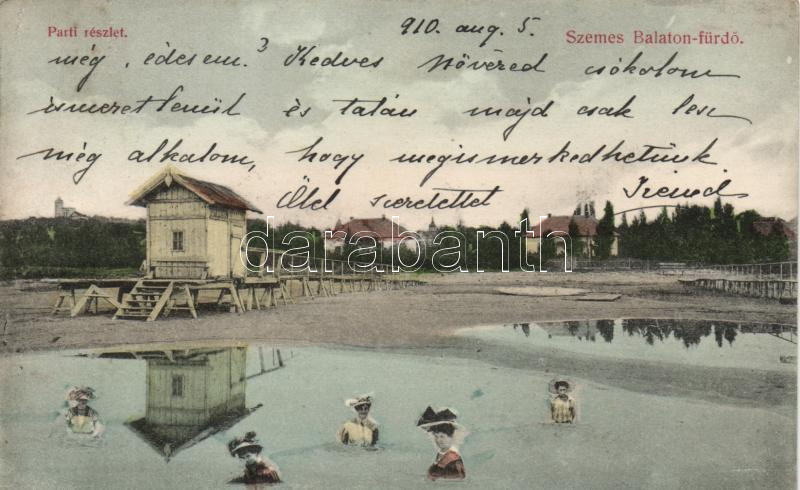 Parti részlet.
910. aug. 5.
Szemes Balaton-fürdő.
még, édesem.? Kedves nővéred csókolom
ismeretlenül és talán majd csak lesz
még alkalom, hogy megismerkedhetünk
Ölel szeretettel Iréned
darabanth